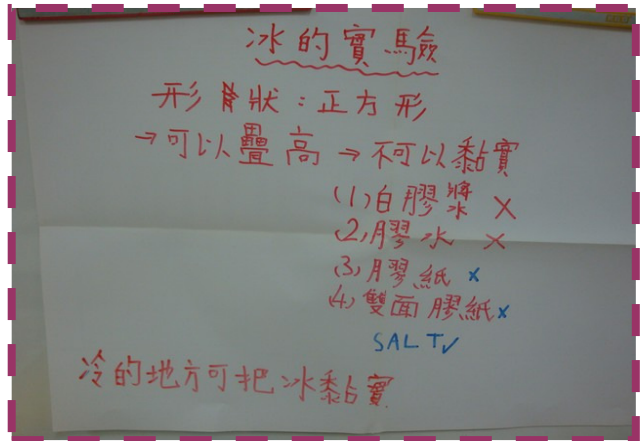 冰的實驗
形狀：正方形
→可以疊高→不可以黏實
(1)白膠漿水 X
(2)膠水 X
(3)膠紙 x
(4)雙面膠紙x
SALT✓
冷的地方可把冰黏實